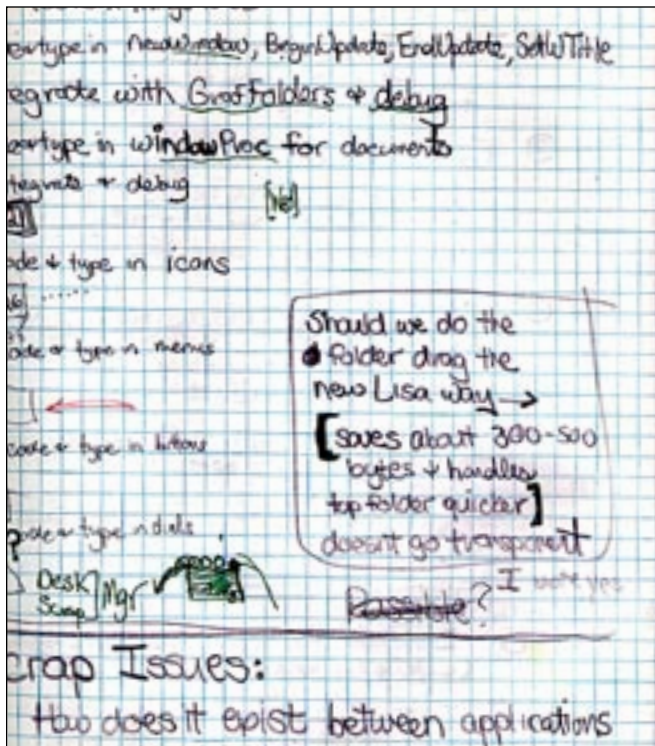 type in newwindow, BeginUpdate, EndUpdate, SetWTitle
egrate with GrafFolders & debug
type in windowProc for documents
tegrate & debug
[No]
ode & type in icons
ode & type in menus
code & type in buttons
ode & type in dials
Desk
Scrap] Mgr
Should we do the
folder drag the
new Lisa way →
[saves about 300-500
bytes & handles
top folder quicker]
doesn't go transparent
I vote yes
Possible?
crap Issues:
How does it exist between applications